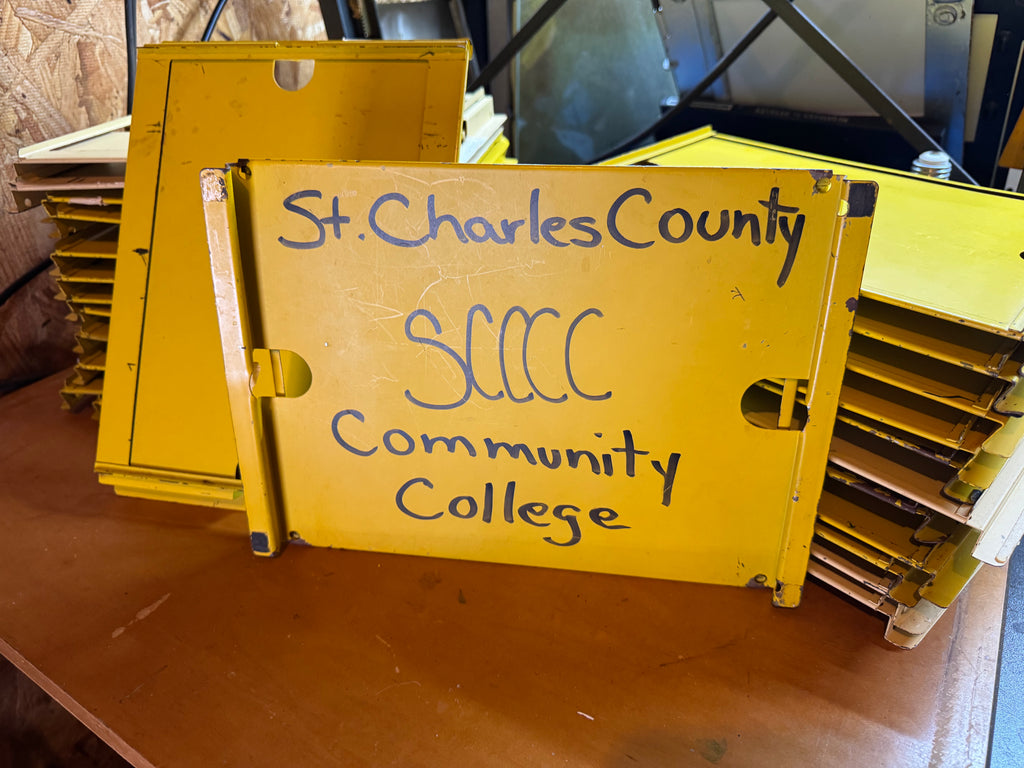 St. Charles County
SCCC
Community
College